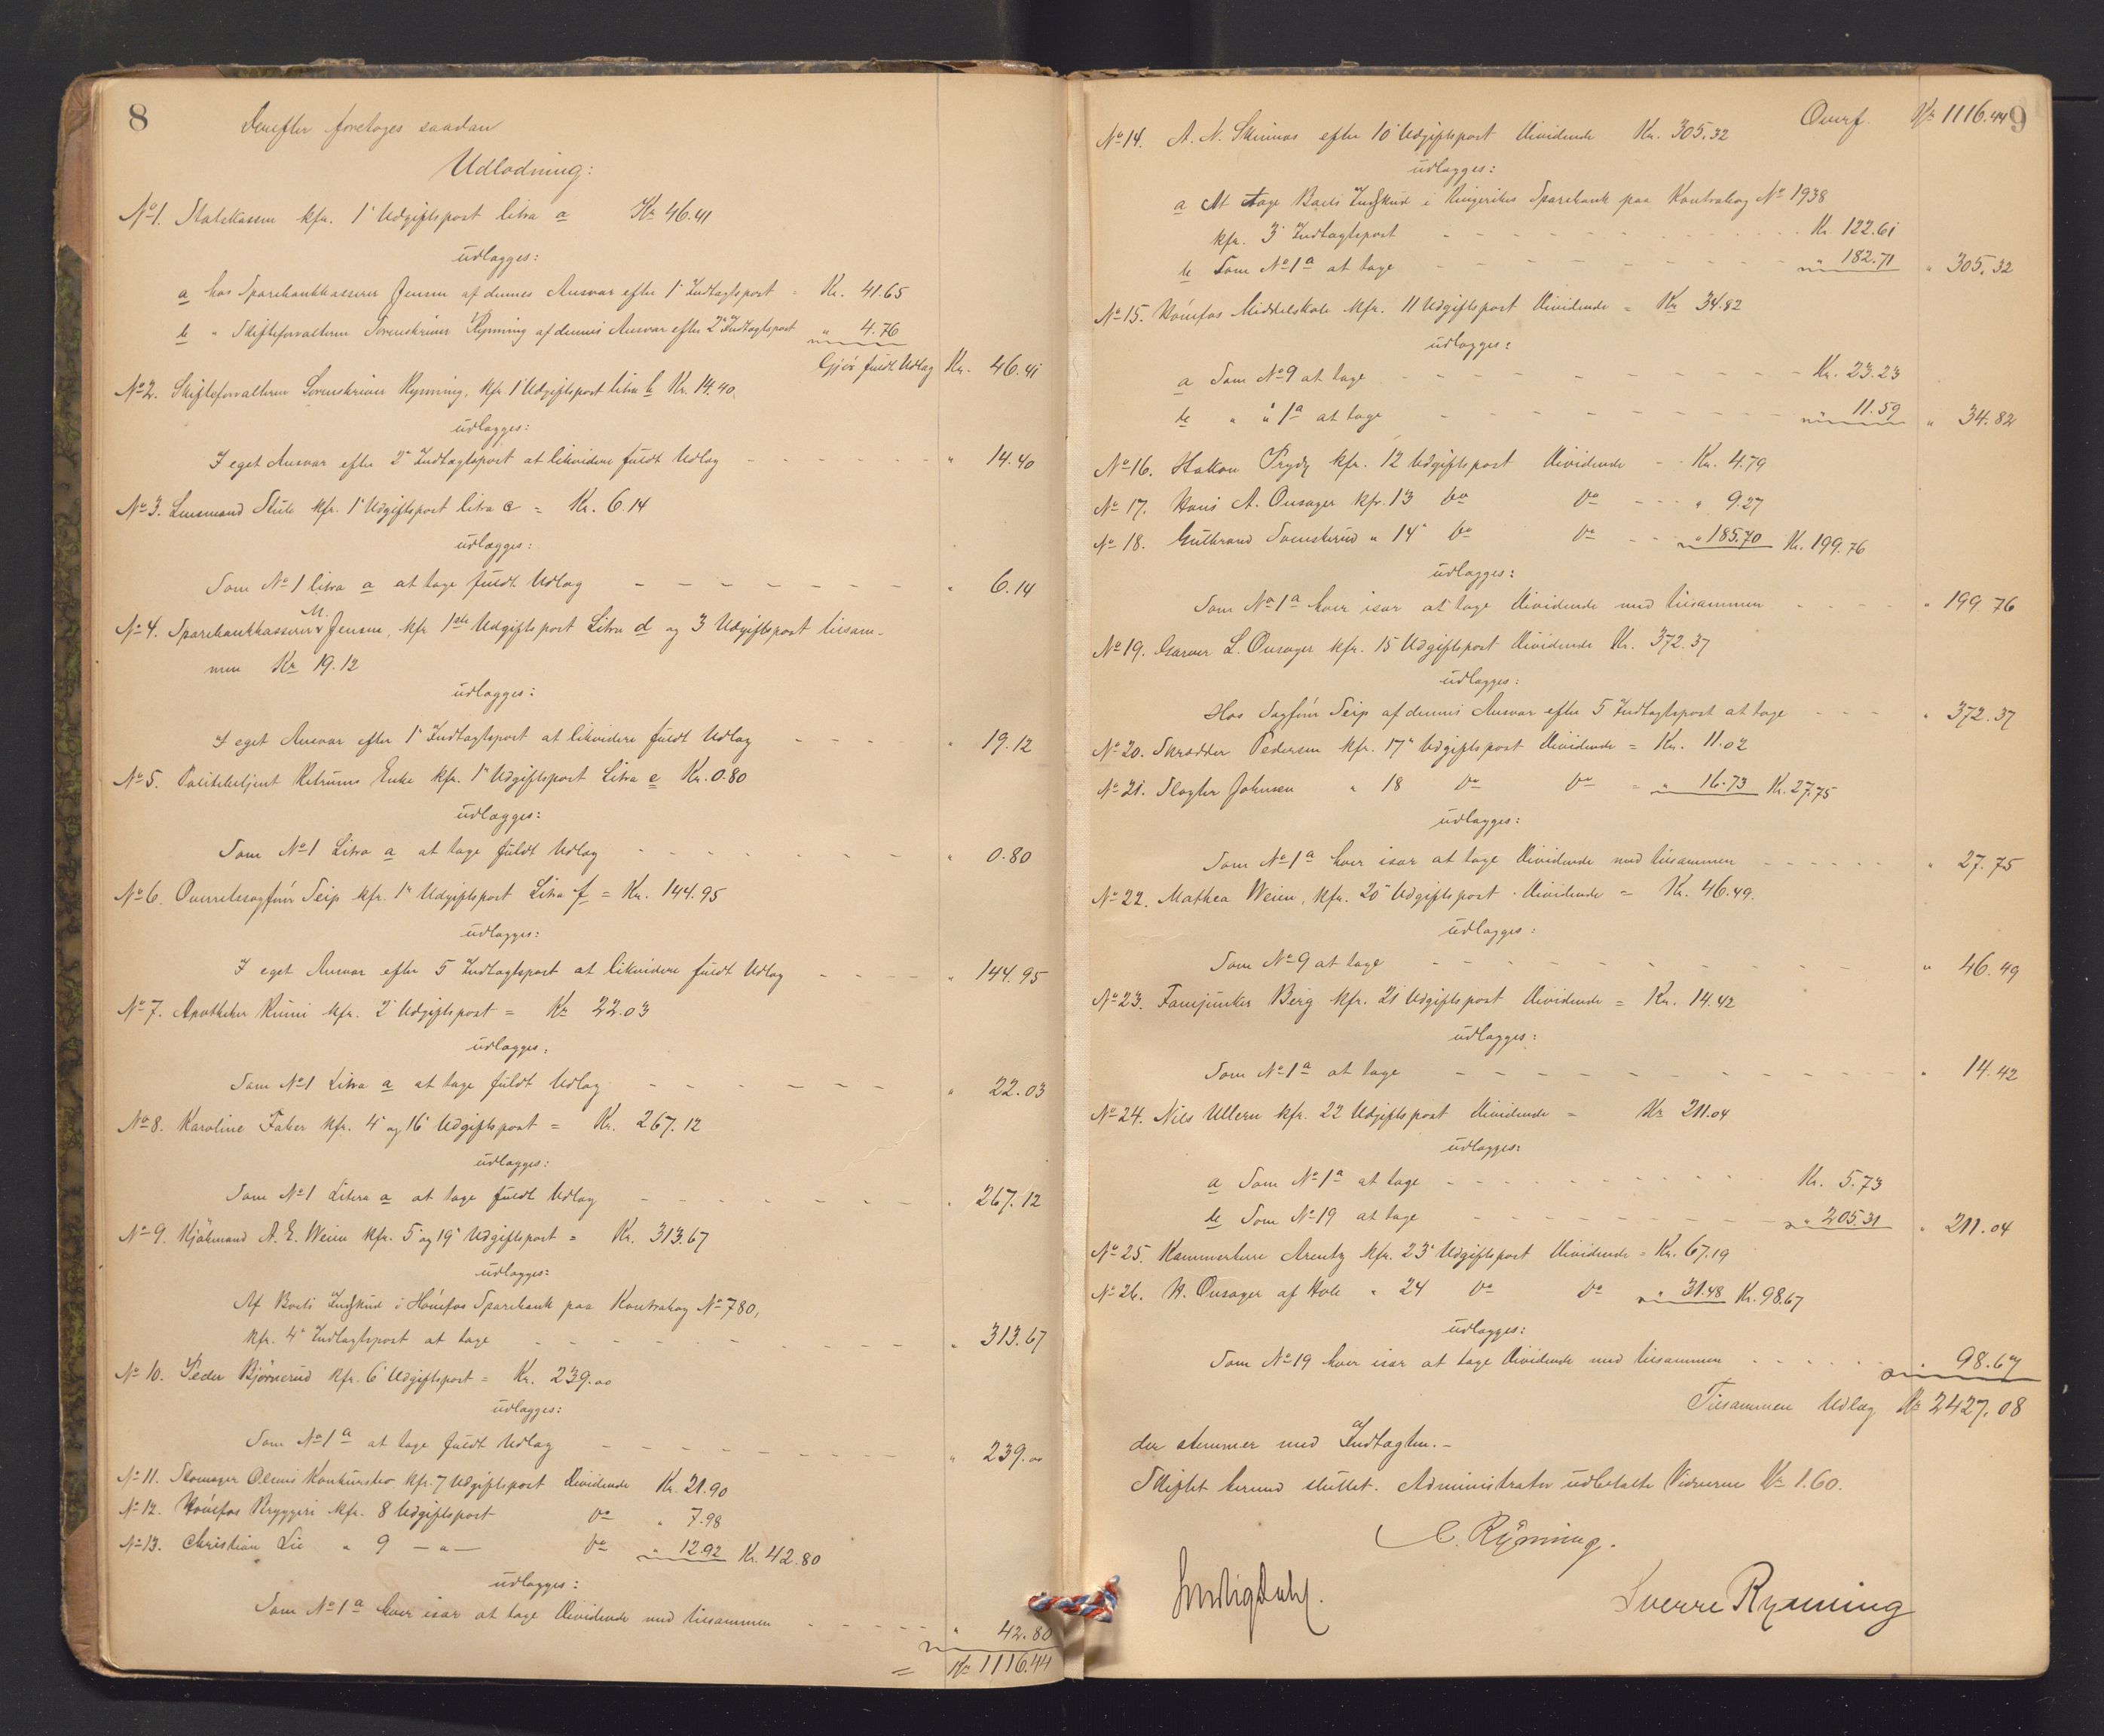 8
Derefter foretages saadan
Udlodning:
No 1. Statskassen kfr. 1' Udgiftspost litra a Kr 46.41
udlægges:
a hos Sparebankkasserer Jensen af dennes Ansvar efter 1' Indtægtspost = Kr. 41.65
b " Skifteforvalteren Sorenskriver Rynning af dennes Ansvar efter 2' Indtægtspost " 4.76
Gjør fuldt Udlæg Kr. 46.41
No 2. Skifteforvalteren Sorenskriver Rynning, kfr. 1' Udgiftspost litra b Kr. 14.40.
udlægges:
I eget Ansvar efter 2' Indtægtspost at likvidere fuldt Udlæg - - - - - - " 14.40
No 3. Lensmand Stub kfr. 1' Udgiftspost litra c = Kr. 6.14
udlægges:
Som No 1 litra a at tage fuldt Udlæg - - - - - - - " 6.14
No 4. Sparebankkasserer M. Jensen, kfr 1ste Udgiftspost Litra d og 3 Udgiftspost tilsam-
men Kr 19.12
udlægges:
I eget Ansvar efter 1' Indtægtspost at likvidere fuldt Udlæg - - - - " 19.12
No 5. Politibetjent Enke kfr. 1' Udgiftspost Litra e Kr. 0.80
udlægges:
Som No 1 Litra a at tage fuldt Udlæg - - - - - - - " 0.80
No 6. Overretssagfører Seip kfr. 1' Udgiftspost Litra f = Kr. 144.95
udlægges:
I eget Ansvar efter 5 Indtægtspost at likvidere fuldt Udlæg - - - - " 144.95
No 7. Apotheker kfr. 2' Udgiftspost = Kr 22.03
udlægges:
Som No 1 Litra a at tage fuldt Udlæg - - - - - - " 22.03
No 8. Karoline Faber kfr. 4' og 16' Udgiftspost = Kr. 267.12
udlægges:
Som No 1 Litera a at tage fuldt Udlæg - - - - - - - " 267.12
No 9. Kjøbmand A. E. Weien kfr. 5' og 19' Udgiftspost = Kr. 313.67
udlægges:
Af Boets Indskud i Hønefos Sparebank paa Kontrabog No 780,
kfr. 4' Indtægtspost at tage - - - - - - - - " 313.67
No 10. Peder Bjørnerud kfr. 6' Udgiftspost = Kr. 239.00
udlægges:
Som No 1 a at tage fuldt Udlæg - - - - - - - - " 239.00
No 11. Skomager Olsens Konkursbo kfr. 7 Udgiftspost Dividende Kr. 21.90
No 12. Hønefos Bryggeri kfr. 8 Udgiftspost Do " 7.98
No 13. Christian Lie " 9 — " — Do " 12.92 Kr. 42.80
udlægges:
Som No 1 a hver især at tage Dividende med tilsammen - - - - - " 42.80
= Kr 1116.44
9
Overf. Kr 1116.44
No 14. A. N. efter 10' Udgiftspost Dividende Kr. 305.32
udlægges:
a At tage Boets Indskud i Ringerikes Sparebank paa Kontrabog No 1938
kfr. 3' Indtægtspost - - - - - - - - - Kr. 122.61
b Som No 1 a at tage - - - - - - - - - " 182.71 " 305.32
No 15. Hønefos Middelskole kfr. 11 Udgiftspost Dividende = Kr 34.82
udlægges:
a Som No 9 at tage - - - - - - - - - Kr. 23.23
b " " 1 a at tage - - - - - - - - " 11.59 " 34.82
No 16. Hakon Prydz kfr. 12 Udgiftspost Dividende - - Kr. 4.79
No 17. Hans A. Onsager kfr. 13 Do Do - - - " 9.27
No 18. Gulbrand " 14' Do Do - - - " 185.70 Kr. 199.76
udlægges:
Som No 1 a hver især at tage Dividende med tilsammen - - - - " 199.76
No 19. Garver L. Onsager kfr. 15 Udgiftspost Dividende Kr. 372.37
udlægges:
Hos Sagfører Seip af dennes Ansvar efter 5 Indtægtspost at tage - - - " 372.37
No 20. Skrædder Pedersen kfr. 17' Udgiftspost Dividende = Kr. 11.02
No 21. Slagter Johnsen " 18 Do Do = " 16.73 Kr. 27.75
udlægges:
Som No 1 a hver især at tage Dividende med tilsammen - - - - - - " 27.75
No 22. Mathea Weien, kfr. 20' Udgiftspost Dividende = Kr. 46.49.
udlægges:
Som No 9 at tage - - - - - - - - - - - " 46.49
No 23. Fanejunker Berg kfr. 21 Udgiftspost Dividende = Kr. 14.42
udlægges:
Som No 1 a at tage - - - - - - - - - - - " 14.42
No 24. Nils Ullern kfr. 22 Udgiftspost Dividende = Kr 211.04
udlægges:
a Som No 1 a at tage - - - - - - - - Kr. 5.73
b Som No 19 at tage - - - - - - - - " 205.31 " 211.04
No 25. Kammerherre Arentz kfr. 23' Udgiftspost Dividende = Kr. 67.19
No 26. H. Onsager af Hole " 24 Do Do " 31.48 Kr. 98.67
udlægges:
Som No 19 hver især at tage Dividende med tilsammen - - - - - " 98.67
Tilsammen Udlæg Kr 2427.08
der stemmer med Indtægten. -
Skiftet hermed sluttet. Administrator udbetalte Vidnerne Kr 1.60.
C. Rynning.
Sverre Rynning